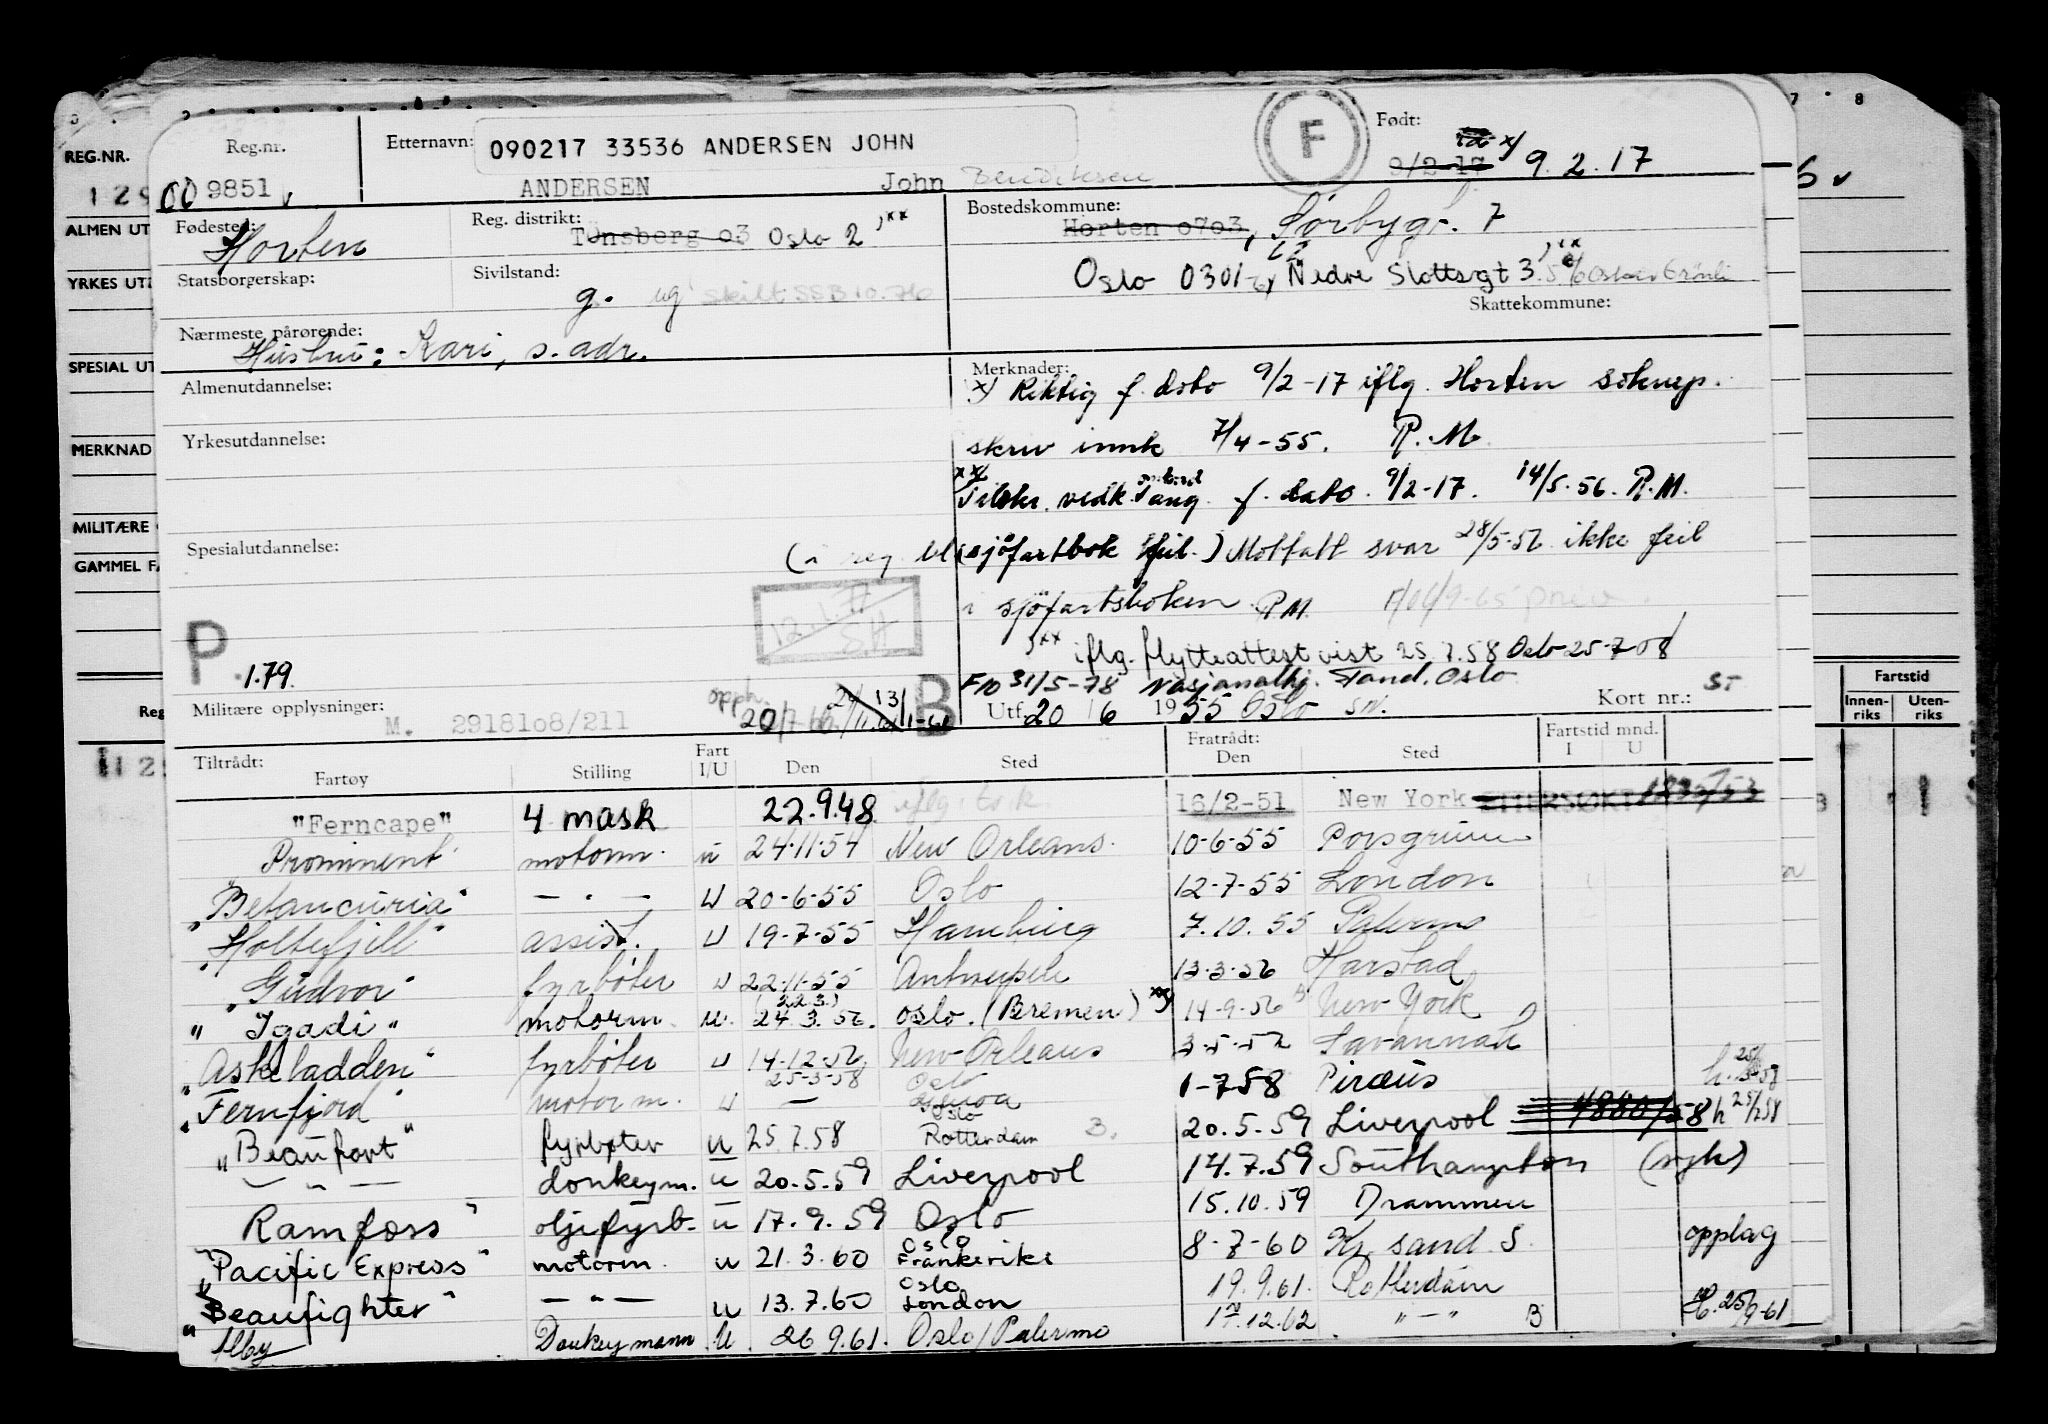 Reg.nr. Etternavn: 090217 33536 ANDERSEN JOHN F Født: 9/2-17 9.2.17
009851 ANDERSEN John Bendiksen
Fødested: Horten Reg. distrikt: Tönsberg 03 Oslo 2 Bostedskommune: Horten 0703, Sørbygt. 7
Statsborgerskap: Sivilstand: g. ug skilt SSB 10.76 Oslo 0301 Nedre Slottsgt 3
Skattekommune:
Nærmeste pårørende: Hustru: Kari, s. adr.
Almenutdannelse: Merknader:
x) Riktig f. dato 9/2-17 iflg. Horten
Yrkesutdannelse: skriv innk 7/4-55. R.M.
vedk. f. dato. 9/2-17. 14/5-56. R.M.
Spesialutdannelse: (i reg sjøfartbok feil.) Mottatt svar 28/5-56 ikke feil
i sjøfartsboken. R.M.
P iflg. flytteattest vist 25.7.58 Oslo 25-7-58
1.79. F10 31/5-78 Oslo
Militære opplysninger: M. 2918108/211 opph. B Utf. 20 / 6 1955 Oslo Kort nr.:
Tiltrådt: Fartøy Stilling Fart I/U Den Sted Fratrådt: Den Sted Fartstid mnd. I U
"Ferncape" 4 mask 22.9.48 16/2-51 New York
"Prominent" motorm. u 24-11-54 New Orleans. 10-6-55 Porsgrunn
"Betancuria" — " — U 20-6-55 Oslo 12-7-55 London
"Holtefjell" assist. U 19-7-55 Hamburg 7.10.55 Palermo
"Gudvor" fyrbøter U 22-11-55 Antwerpen 13-3-56 Harstad
"Igadi" motorm. u. (22.3.) 24.3.56. Oslo. (Bremen) 14-9-56 New York
"Askeladden" fyrbøter U 14-12-56 New Orleans Savannah
"Fernfjord" motorm. U 25-3-58 Oslo 1-7 58 Piræus
"Beaufort" fyrbøter u 25.7.58 Oslo Rotterdam 20.5-59 Liverpool 4880/58 h 25/7 58
— " — donkeym. u 20.5.59 Liverpool 14.7.59 Southampton (syk)
Ramfoss" oljefyrb. u 17.9.59 Oslo 15.10.59 Drammen
"Pacific Express" motorm. u 21.3.60 Oslo Frankerike 8-7-60 Kr. sand. S. opplag
"Beaufighter" — " — u 13.7.60 Oslo London 19.9.61. Rotterdam
"Alby Donkeymann U. 26.9.61. Oslo/Palermo 17.12.62 " — " B 25/9-61
REG.NR.
ALMEN UT
YRKES UT
SPESIAL UT
MERKNAD
MILITÆRE
GAMMEL F
Reg
Fartstid
Innen-riks Uten-riks